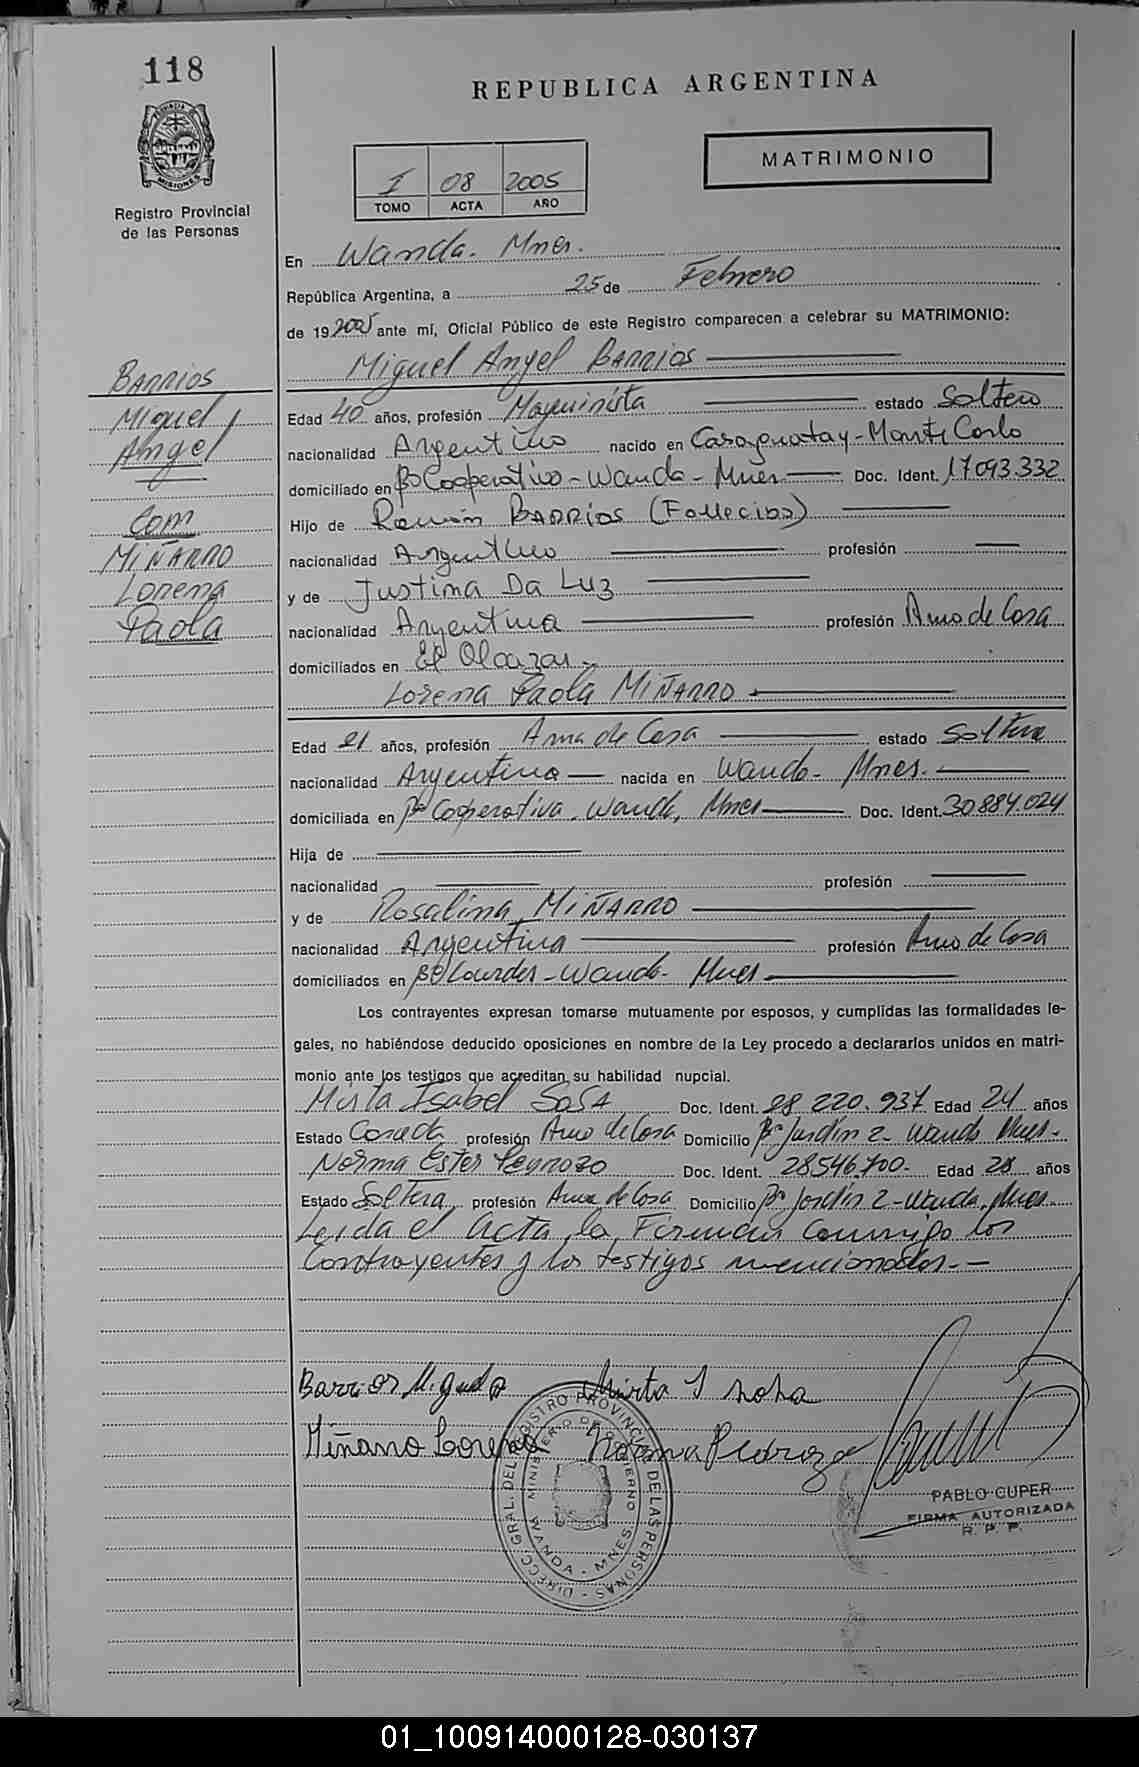 118
REPUBLICA ARGENTINA
MISIONES
Registro Provincial
de las Personas
MATRIMONIO
I 08 2005
TOMO ACTA AÑO
En Wanda. Mnes.
República Argentina, a 25 de Febrero
de 19 2005 ante mí, Oficial Público de este Registro comparecen a celebrar su MATRIMONIO:
Miguel Angel BARRIOS
BARRIOS
Miguel
Angel
Com
MIÑARRO
Lorena
Paola
Edad 40 años, profesión Maquinista estado Soltero
nacionalidad Argentino nacido en Caraguatay - Monte Carlo
domiciliado en Bº Cooperativo - Wanda - Mnes Doc. Ident. 17093.332
Hijo de Ramón BARRIOS (Fallecido)
nacionalidad Argentino profesión
y de Justina Da Luz
nacionalidad Argentina profesión Ama de Casa
domiciliados en El Alcazar
Lorena Paola MIÑARRO
Edad 21 años, profesión Ama de Casa estado Soltera
nacionalidad Argentina nacida en Wanda - Mnes.
domiciliada en Bº Cooperativa, Wanda, Mnes Doc. Ident. 30884.024
Hija de
nacionalidad profesión
y de Rosalina MIÑARRO
nacionalidad Argentina profesión Ama de Casa
domiciliados en Bº Lourdes - Wanda - Mnes
Los contrayentes expresan tomarse mutuamente por esposos, y cumplidas las formalidades le-
gales, no habiéndose deducido oposiciones en nombre de la Ley procedo a declararlos unidos en matri-
monio ante los testigos que acreditan su habilidad nupcial.
Mirta Isabel SOSA Doc. Ident. 28 220.937 Edad 24 años
Estado Casada profesión Ama de Casa Domicilio Bº Jardín 2 - Wanda Mnes.
Norma Ester Doc. Ident. 28546.700. Edad 28 años
Estado Soltera profesión Ama de Casa Domicilio Bº Jardín 2 - Wanda, Mnes.
Leida el acta, la Firman conmigo los
Contrayentes y los testigos mencionados. -
Barrios Miguel A Mirta I
Miñarro Lorena Norma
DIRECC. GRAL. DEL REGISTRO PROVINCIAL DE LAS PERSONAS
MINISTERIO DE GOBIERNO
WANDA - MNES.
PABLO CUPER
FIRMA AUTORIZADA
R. P. P.
01_100914000128-030137